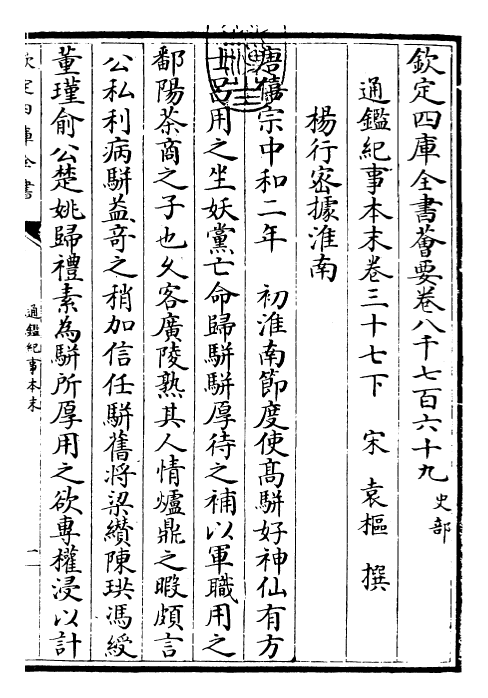 欽定四庫全書薈要卷八千七百六十九 史部
通鑑紀事本末卷三十七下 宋 袁樞 撰
楊行密據淮南
唐僖宗中和二年 初淮南節度使高駢好神仙有方
士呂用之坐妖黨亡命歸駢駢厚待之補以軍職用之
鄱陽茶商之子也久客廣陵熟其人情爐鼎之暇頗言
公私利病駢益竒之稍加信任駢舊將梁纘陳珙馮綬
董瑾俞公楚姚歸禮素為駢所厚用之欲専權浸以計
欽定四庫全書
通鑑紀事本末
一